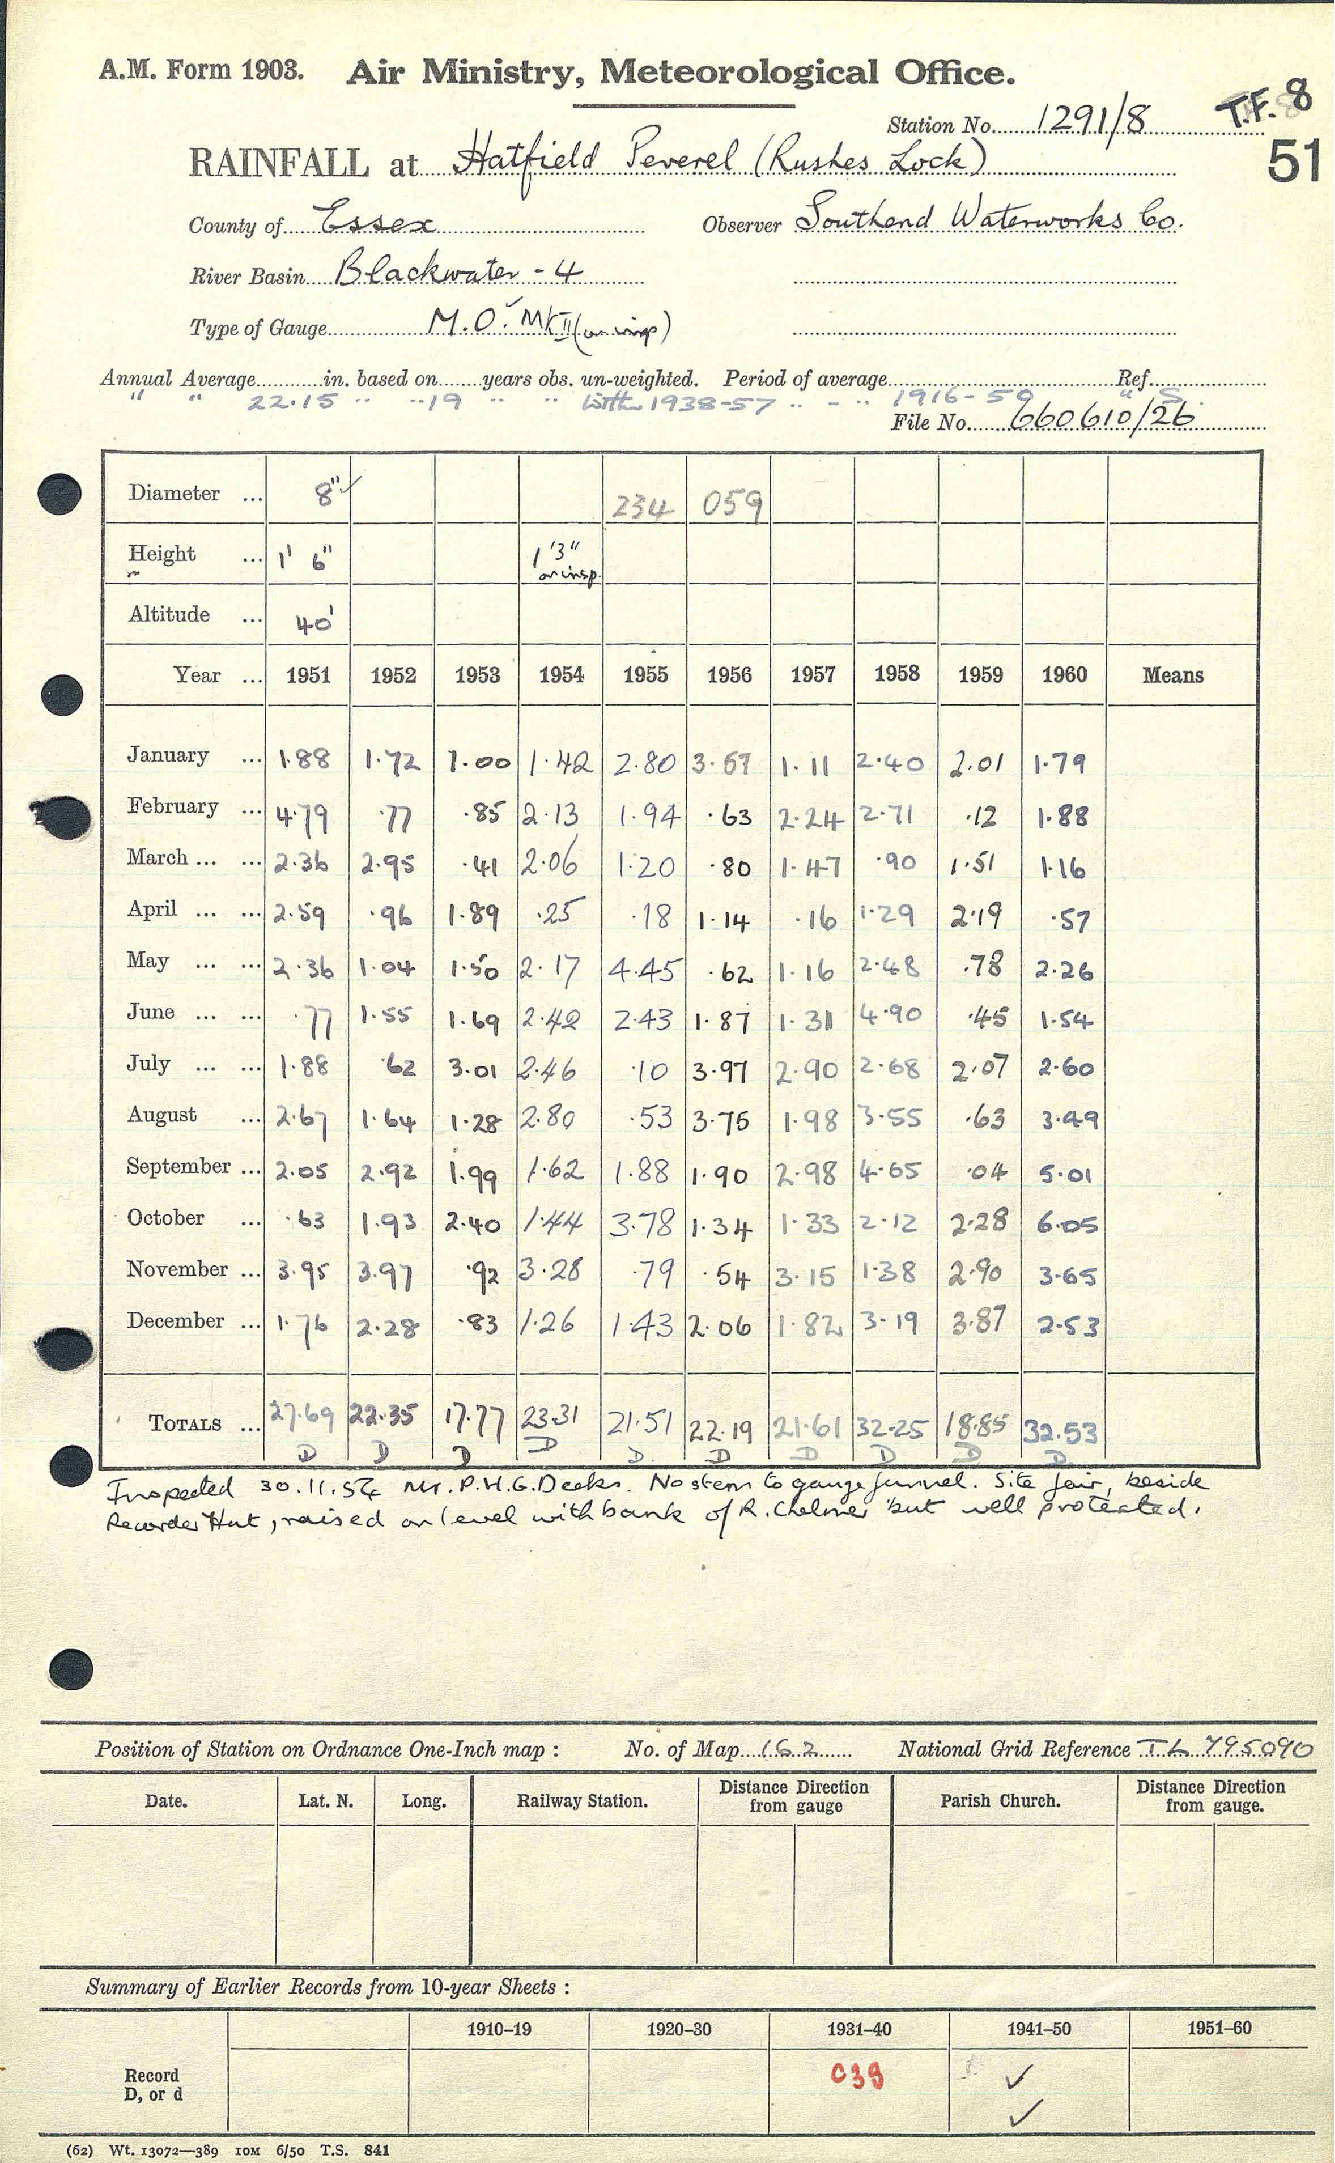 A.M. Form 1903. Air Ministry, Meteorological Office.
T.F. 8
Station No. 1291/8
51
RAINFALL at Hatfield Peverel (Rushes Lock)
County of Essex Observer Southend Waterworks Co.
River Basin Blackwater - 4
Type of Gauge M.O. MkII (on insp)
Annual Average in. based on years obs. un-weighted. Period of average Ref.
" " 22.15 " " 19 " " with 1938-57 " - " 1916-50 " S.
File No. 660610/26
Diameter ... 8" ✓ 234 059
Height ... 1' 6" 1'3" on insp.
Altitude ... 40'
Year ... 1951 1952 1953 1954 1955 1956 1957 1958 1959 1960 Means
January ... 1.88 1.72 1.00 1.42 2.80 3.57 1.11 2.40 2.01 1.79
February ... 4.79 .77 .85 2.13 1.94 .63 2.24 2.71 .12 1.88
March ... ... 2.36 2.95 .41 2.06 1.20 .80 1.47 .90 1.51 1.16
April ... ... 2.59 .96 1.89 .25 .18 1.14 .16 1.29 2.19 .57
May ... ... 2.36 1.04 1.50 2.17 4.45 .62 1.16 2.48 .78 2.26
June ... ... .77 1.55 1.69 2.42 2.43 1.87 1.31 4.90 .45 1.54
July ... ... 1.88 .62 3.01 2.46 .10 3.97 2.90 2.68 2.07 2.60
August ... 2.67 1.64 1.28 2.80 .53 3.75 1.98 3.55 .63 3.49
September ... 2.05 2.92 1.99 1.62 1.88 1.90 2.98 4.65 .04 5.01
October ... .63 1.93 2.40 1.44 3.78 1.34 1.33 2.12 2.28 6.05
November ... 3.95 3.97 .92 3.28 .79 .54 3.15 1.38 2.90 3.65
December ... 1.76 2.28 .83 1.26 1.43 2.06 1.82 3.19 3.87 2.53
TOTALS ... 27.69 22.35 17.77 23.31 21.51 22.19 21.61 32.25 18.85 32.53
D D D D D D D D D D
Inspected 30.11.54 Mr. P.H.G. Decks. No stem to gauge funnel. Site fair, beside
Recorder Hut, raised on level with bank of R. Chelmer but well protected.
Position of Station on Ordnance One-Inch map : No. of Map 162 National Grid Reference TL 795090
Date. Lat. N. Long. Railway Station. Distance Direction from gauge Parish Church. Distance Direction from gauge.
Summary of Earlier Records from 10-year Sheets :
1910–19 1920–30 1931–40 1941–50 1951–60
Record D, or d C39 ✓
✓
(62) Wt. 13072—389 10M 6/50 T.S. 841